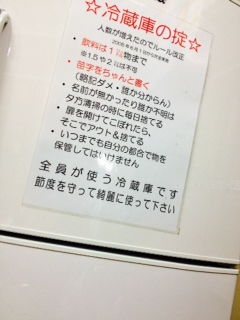 ☆冷蔵庫の掟☆
人数が増えたのでルール改正
2006年6月19から完全実施
・飲料は1㍑物まで
※1.5や2㍑は不可
・苗字をちゃんと書く
(略記ダメ・誰か分からん)
・名前が無かったり誰か不明は
夕方清掃の時に毎日捨てる
・扉を開けてこぼれたら、
そこでアウト&捨てる
・いつまでも自分の都合で物を
保管してはいけません
全員が使う冷蔵庫です
節度を守って綺麗に使って下さい